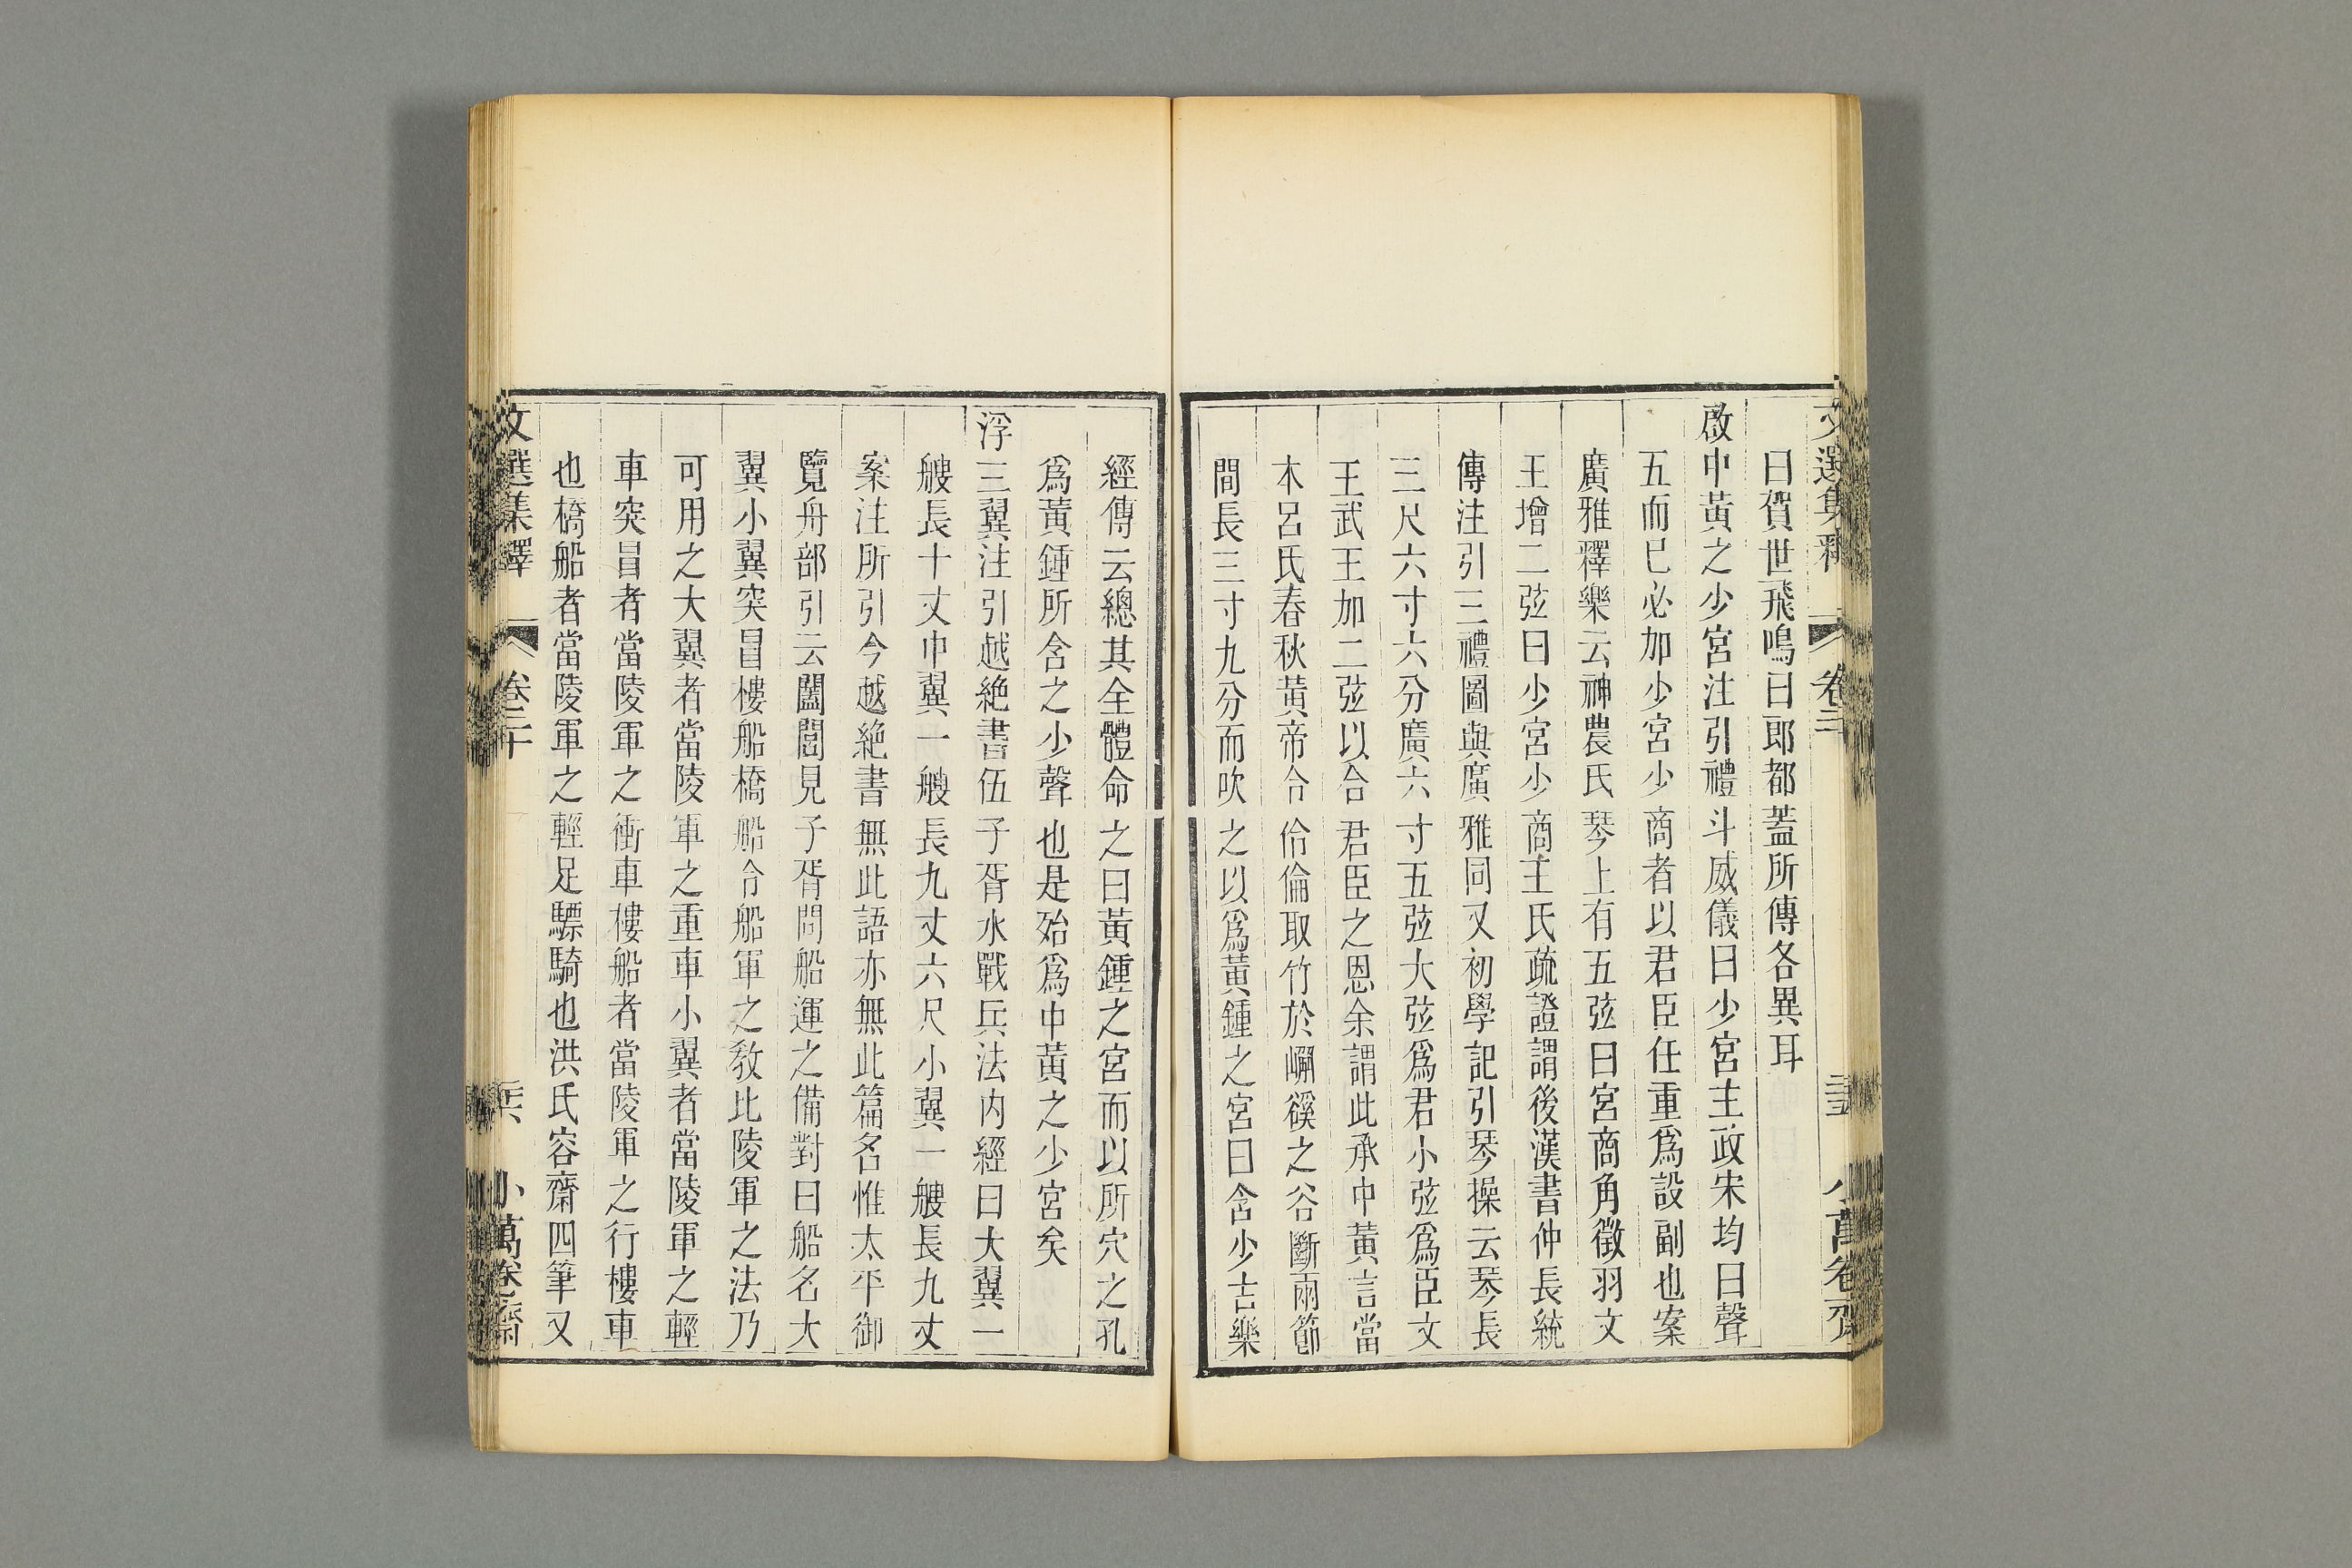 文選集釋 卷二十 小萬卷齋
曰賀世飛鳴曰郎都蓋所傳各異耳
啟中黃之少宮注引禮斗威儀曰少宮主政宋均曰聲
五而已必加少宮少商者以君臣任重爲設副也案
廣雅釋樂云神農氏琴上有五弦曰宮商角徵羽文
王增二弦曰少宮少商王氏疏證謂後漢書仲長統
傳注引三禮圖與廣雅同又初學記引琴操云琴長
三尺六寸六分廣六寸五弦大弦爲君小弦爲臣文
王武王加二弦以合君臣之恩余謂此承中黃言當
木呂氏春秋黃帝令伶倫取竹於嶰谿之谷斷兩節
間長三寸九分而吹之以爲黃鍾之宮曰含少古樂
經傳云總其全體命之曰黃鍾之宮而以所穴之孔
爲黃鍾所含之少聲也是殆爲中黃之少宮矣
浮三翼注引越絶書伍子胥水戰兵法内經曰大翼一
艘長十丈中翼一艘長九丈六尺小翼一艘長九丈
案注所引今越絶書無此語亦無此篇名惟太平御
覽舟部引云闔閭見子胥問船運之備對曰船名大
翼小翼突冒樓船橋船令船軍之教比陵軍之法乃
可用之大翼者當陵軍之重車小翼者當陵軍之輕
車突冒者當陵軍之衝車樓船者當陵軍之行樓車
也橋船者當陵軍之輕足驃騎也洪氏容齋四筆又
文選集釋 卷二十 小萬卷齋